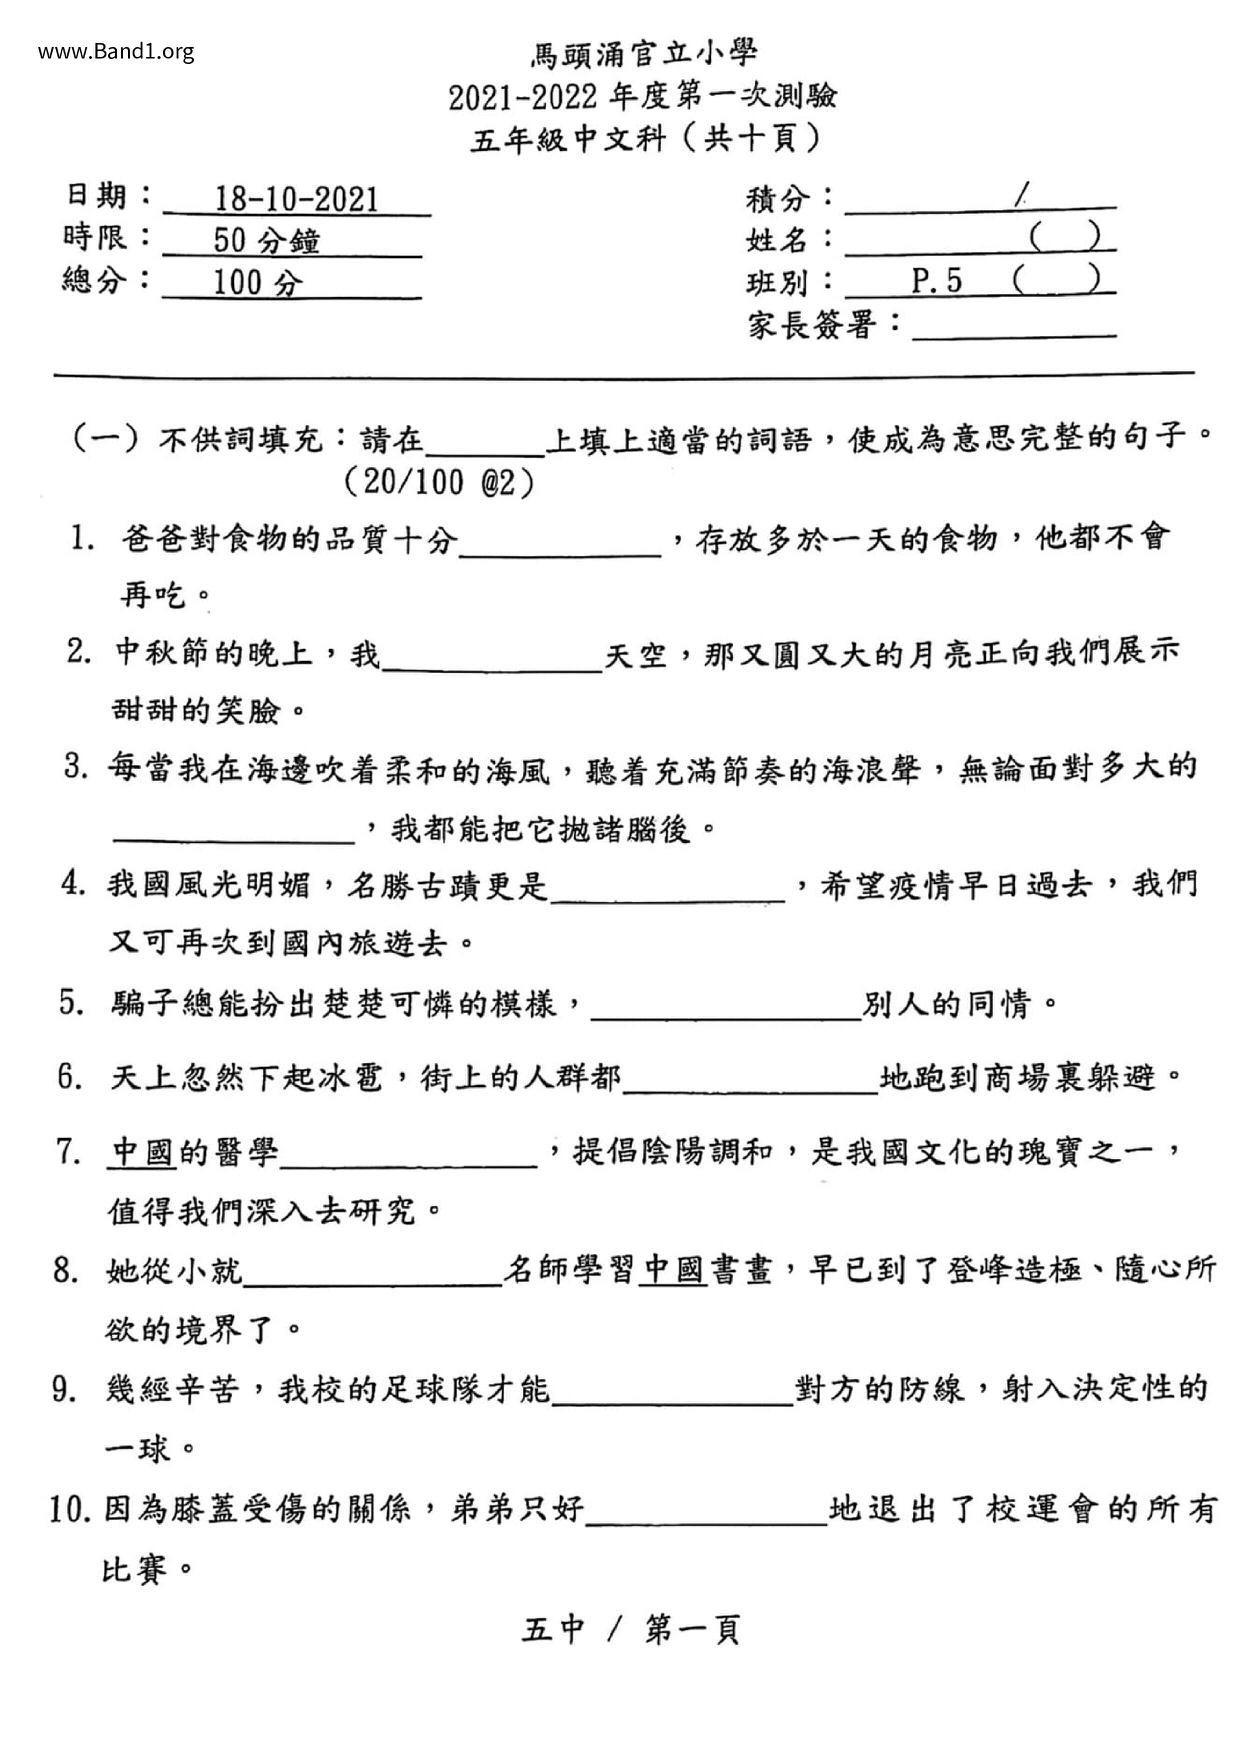 www.Band1.org
馬頭涌官立小學
2021-2022 年度第一次測驗
五年級中文科（共十頁）
日期：18-10-2021
積分：/
時限：50 分鐘
姓名：(　)
總分：100 分
班別：P.5 (　)
家長簽署：
（一）不供詞填充：請在______上填上適當的詞語，使成為意思完整的句子。
（20/100 @2）
1. 爸爸對食物的品質十分__________，存放多於一天的食物，他都不會
再吃。
2. 中秋節的晚上，我__________天空，那又圓又大的月亮正向我們展示
甜甜的笑臉。
3. 每當我在海邊吹着柔和的海風，聽着充滿節奏的海浪聲，無論面對多大的
__________，我都能把它拋諸腦後。
4. 我國風光明媚，名勝古蹟更是__________，希望疫情早日過去，我們
又可再次到國內旅遊去。
5. 騙子總能扮出楚楚可憐的模樣，__________別人的同情。
6. 天上忽然下起冰雹，街上的人群都__________地跑到商場裏躲避。
7. 中國的醫學__________，提倡陰陽調和，是我國文化的瑰寶之一，
值得我們深入去研究。
8. 她從小就__________名師學習中國書畫，早已到了登峰造極、隨心所
欲的境界了。
9. 幾經辛苦，我校的足球隊才能__________對方的防線，射入決定性的
一球。
10. 因為膝蓋受傷的關係，弟弟只好__________地退出了校運會的所有
比賽。
五中 / 第一頁